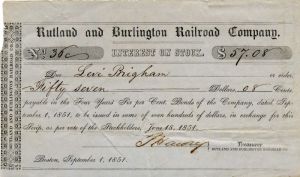 Rutland and Burlington Railroad Company.
No. 36
INTEREST ON STOCK.
$57.08
Due Levi Brigham or order,
Fifty seven Dollars, 08 Cents,
payable in the Four Years Six per Cent. Bonds of the Company, dated Sep-
tember 1, 1851, to be issued in sums of even hundreds of dollars, in exchange for this
Scrip, as per vote of the Stockholders, June 18, 1851.
Treasurer
RUTLAND AND BURLINGTON RAILROAD CO.
Boston, September 1, 1851.